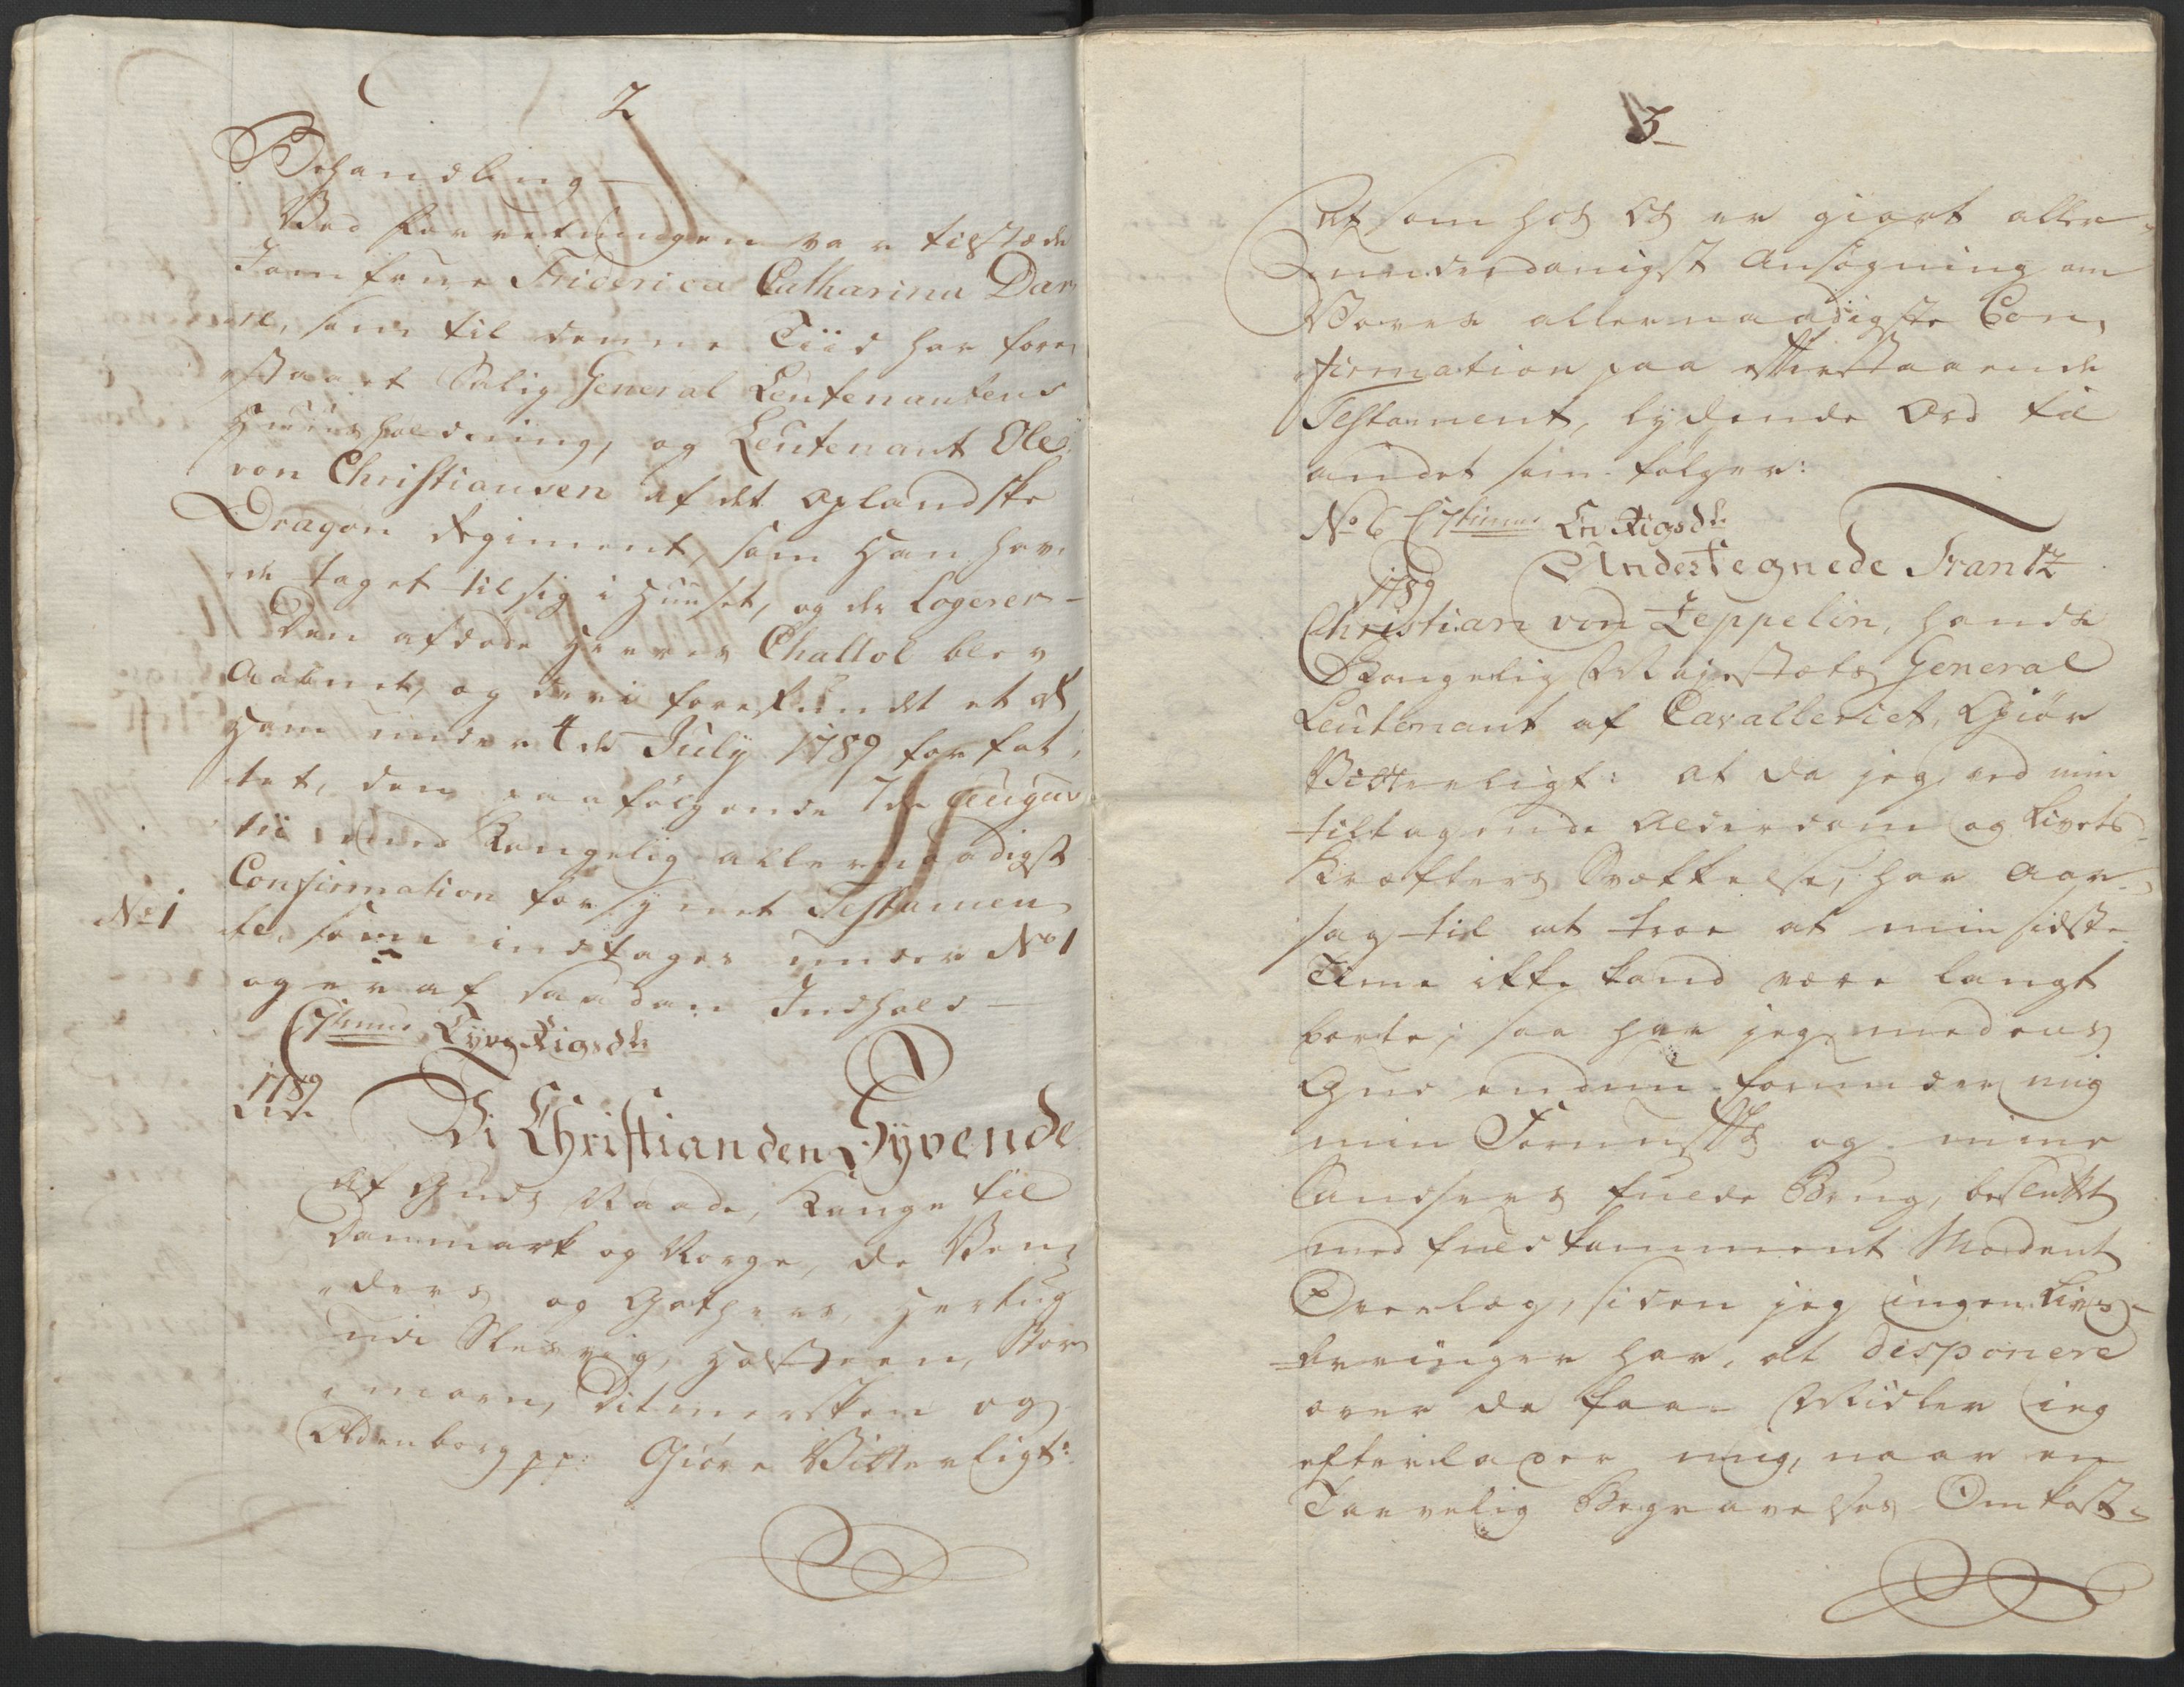 2
Behandling —
Ved forretningen var tilstæde
Jomfrue Friderica Catharina Dar„
„re, som til denne Tiid har fore„
„staaet Salig General Leutenantens
Huusholdning, og Leutenant Ole
von Christiansen af det oplandske
Dragon Regiment, som Han hav„
„de taget til sig i Huuset, og der Logerer —
Den afdøde Herres Chattol blev
Aabnet, og deri forefundet et af
Ham under 4de July 1789 forfat„
„tet, den paafølgende 7de Augu„
tii med Kongelig allernaadigst
Confirmation forsynet Testamen„
No 1
te, som indtages under No 1
og er af saadan Indhold —
C 7timus Tyve Rigsdr
1789
Vi Christian den Syvende
Af Guds Naade, Konge til
Danmark og Norge, de Ven„
„ders og Gothers, Hertug
udi Slesvig, Holsteen, Stor„
„marn, Ditmersken og
Oldenborg pp: Giøre Vitterligt:
3
At som hos Os er giort aller„
„underdanigst Ansøgning om
Vores allernaadigste Con„
„firmation paa efterstaaende
Testament, lydende Ord til
andet som følger:
No 6 C 7timus En Rigsdr
1789
Undertegnede Frantz
Christian von Zeppelin, Hands
Kongelig Majestæts General
Leutenant af Cavalleriet, Giør
Vitterligt: at da jeg ved min
tiltagende Alderdom og Livets
Kræfters Svækkelse, har Aar„
sag til at troe at min sidste
Time ikke kand være langt
borte; saa har jeg medens
Gud endnu forunder mig
min Fornufts og mine
Sandsers fulde Brug, besluttet
med fuldkomment Modent
Overlæg, siden jeg ingen Livs„
„arvinger har, at disponere
over de faae Midler jeg
efterlader mig, naar en
Tarvelig Begravelses Omkost„